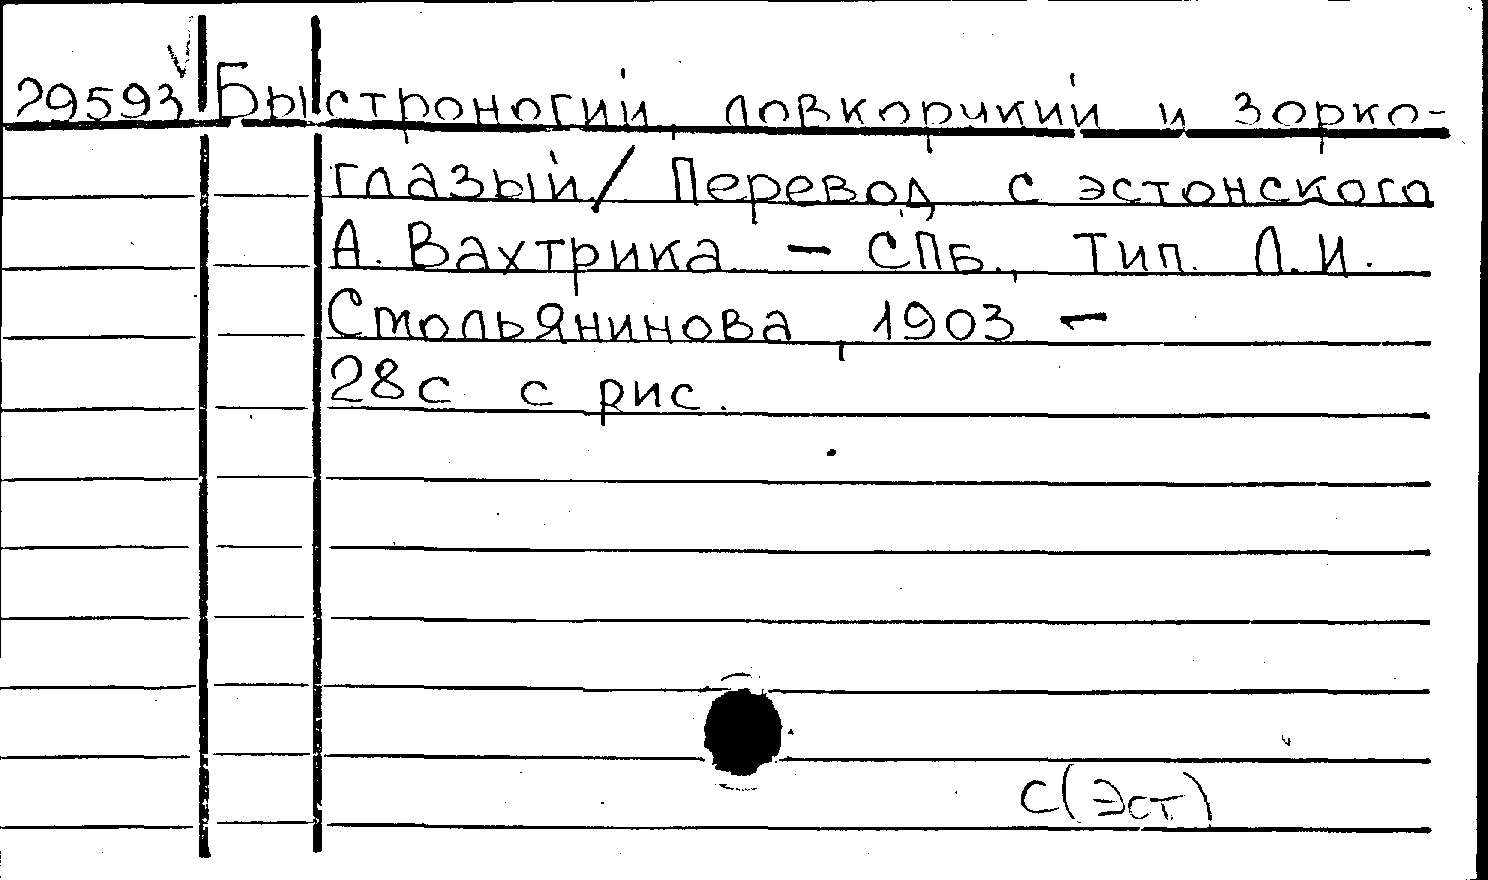 29593 Быстроногий, ловкорукий и зорко-
глазый / Перевод с эстонского
А. Вахтрика – СПб., Тип. Л.И.
Стольянинова, 1903 –
28с с рис.
С(Эст)